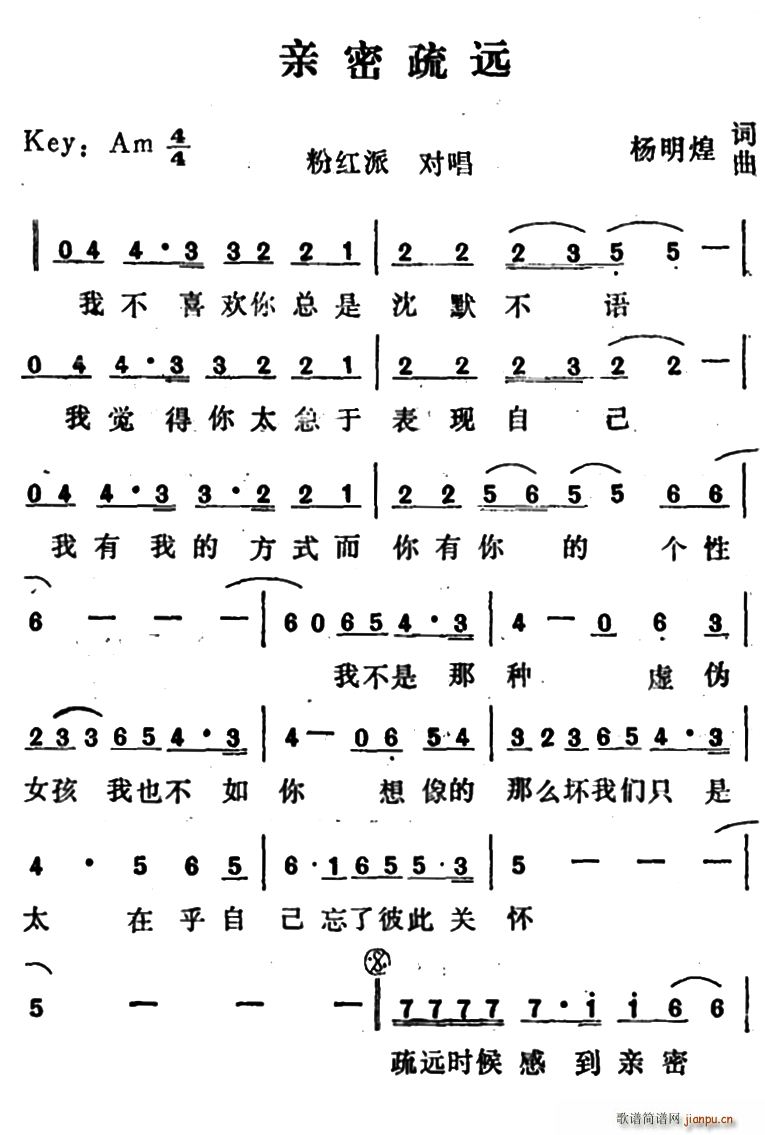 亲密疏远
Key: Am 4/4
粉红派 对唱
杨明煌 词曲
0 4 4·3 3 2 2 1 | 2 2 2 3 5 5 — |
我不喜欢你总是沈默不语
0 4 4·3 3 2 2 1 | 2 2 2 3 2 2 — |
我觉得你太急于表现自己
0 4 4·3 3·2 2 1 | 2 2 5 6 5 5 6 6 |
我有我的方式而你有你的个性
6 — — — | 6 0 6 5 4·3 | 4 — 0 6 3 |
我不是那种虚伪
2 3 3 6 5 4·3 | 4 — 0 6 5 4 | 3 2 3 6 5 4·3 |
女孩我也不如你想像的那么坏我们只是
4 · 5 6 5 | 6·1 6 5 5·3 | 5 — — — |
太在乎自己忘了彼此关怀
5 — — — | 7 7 7 7 7·i i 6 6 |
疏远时候感到亲密
歌谱简谱网
jianpu.cn